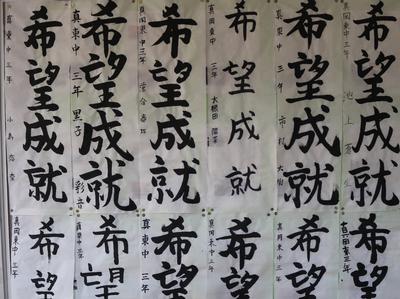 希望成就
真岡東中三年 池上
希望成就
真東中 三年 市村
希望成就
真岡東中 三年 大根田
希望成就
真岡東中三年
希望成就
真東中 三年 彩音
希望成就
真東中 三年 小島
希望
希望
真岡東中 三年
希望
真岡東中
希望
真東中 三年
希望
希望
真岡東中三年